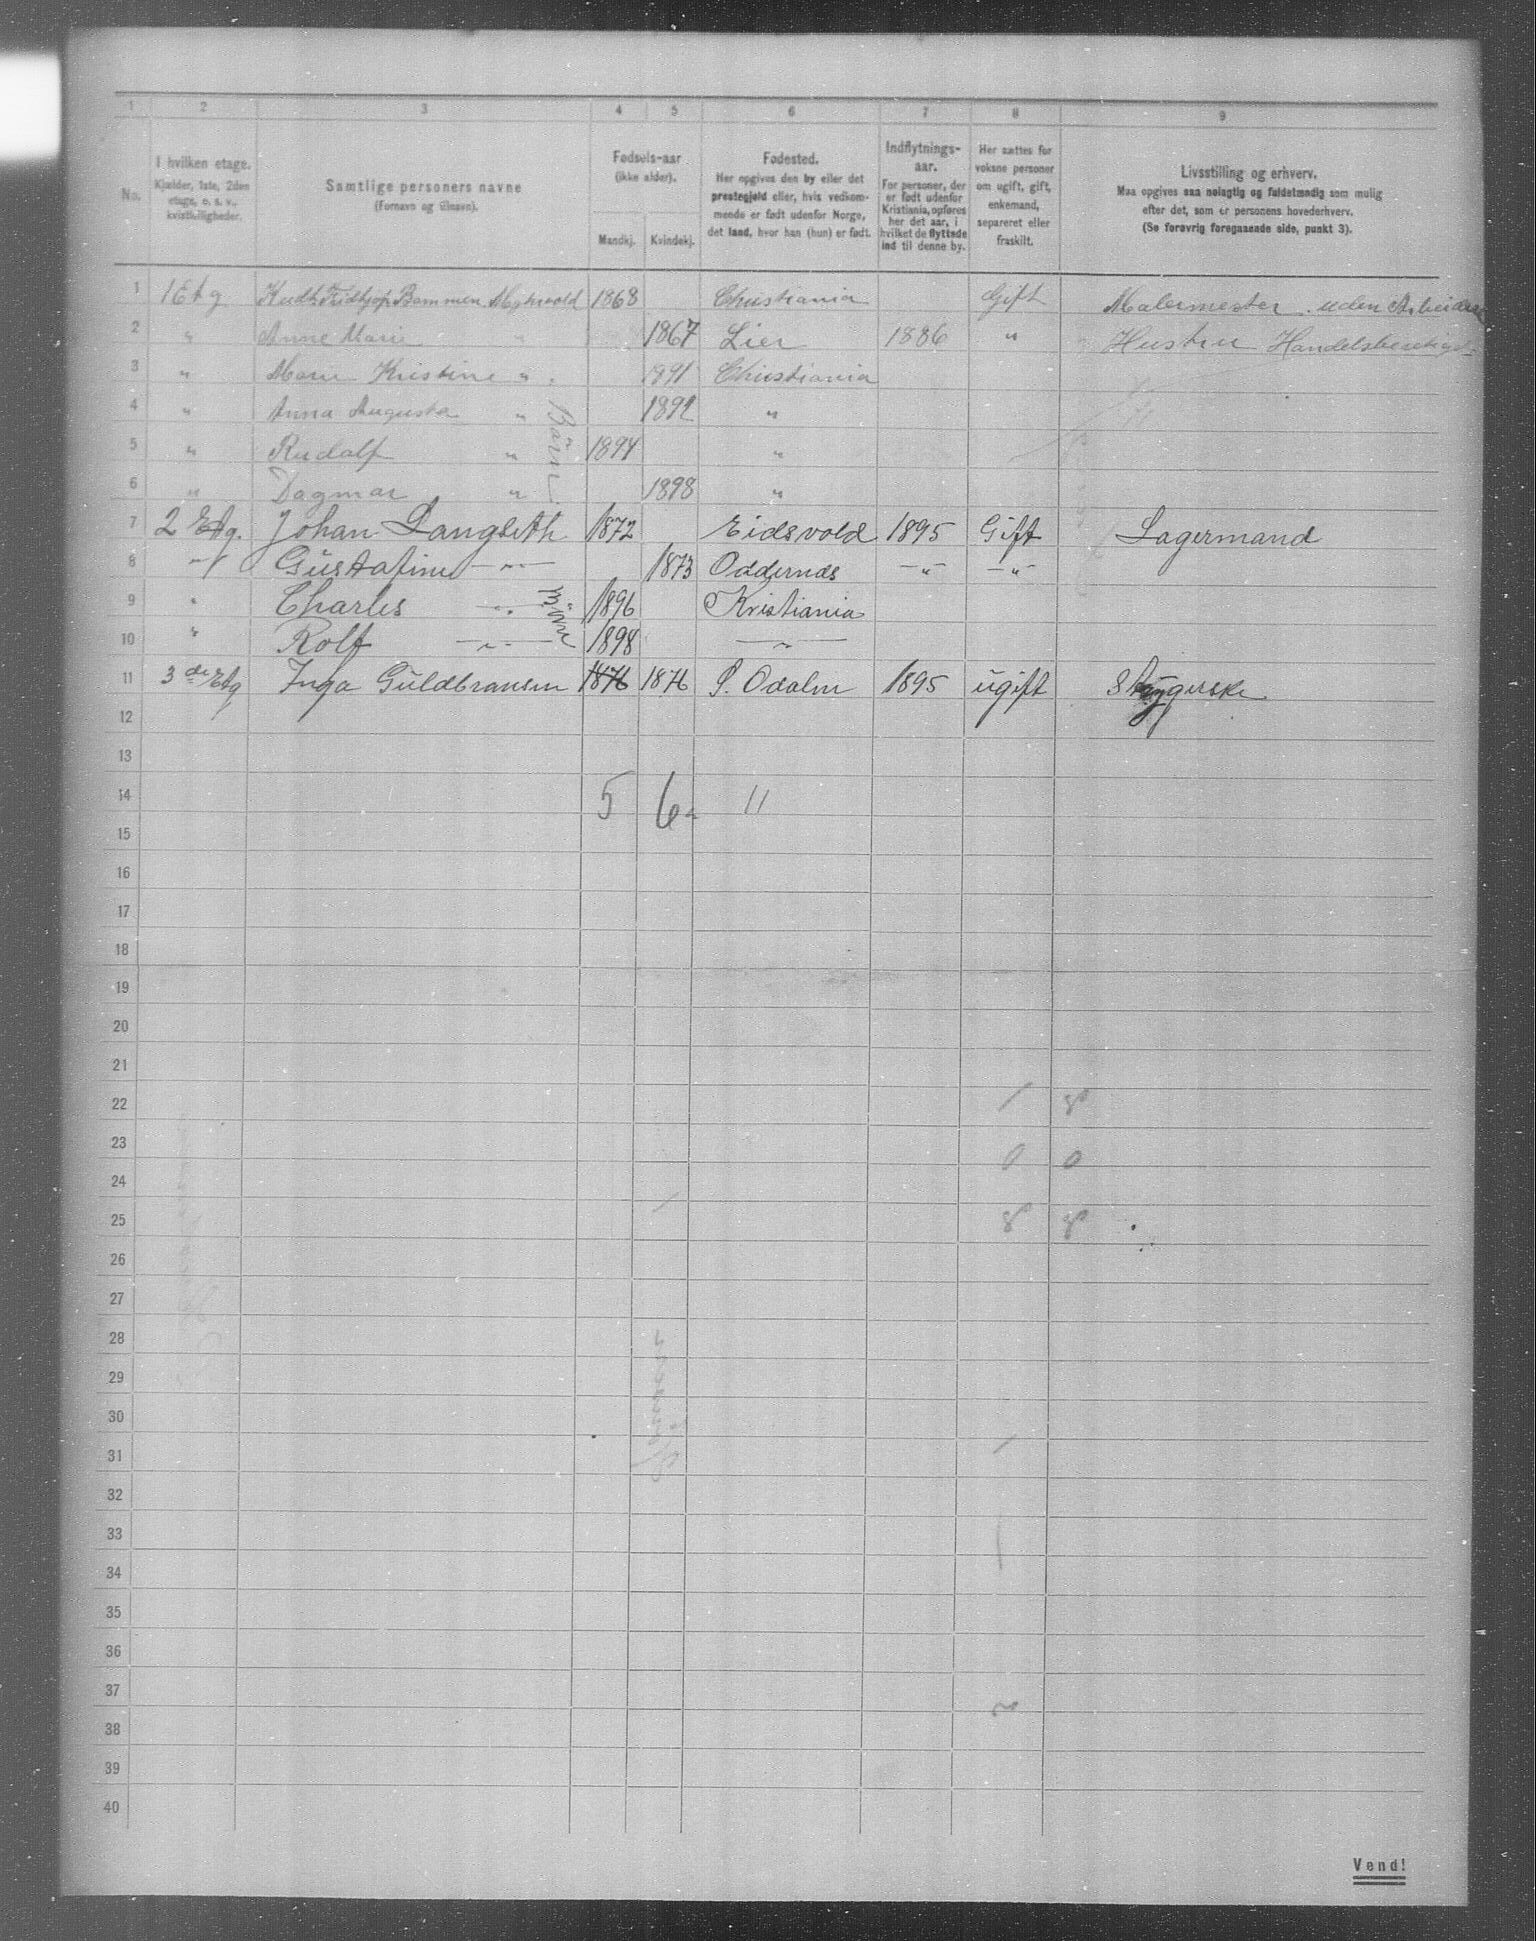 1 2 3 4 5 6 7 8 9
No.
I hvilken etage.
Kjælder, 1ste, 2den etage, o. s. v., kvistleiligheder.
Samtlige personers navne
(Fornavn og tilnavn).
Fødsels-aar
(ikke alder).
Mandkj. Kvindekj.
Fødested.
Her opgives den by eller det
prestegjeld eller, hvis vedkom-
mende er født udenfor Norge,
det land, hvor han (hun) er født.
Indflytnings-
aar.
For personer, der
er født udenfor
Kristiania, opføres
her det aar, i
hvilket de flyttede
ind til denne by.
Her sættes for
voksne personer
om ugift, gift,
enkemand,
separeret eller
fraskilt.
Livsstilling og erhverv.
Maa opgives saa nøiagtig og fuldstændig som mulig
efter det, som er personens hovederhverv.
(Se forøvrig foregaaende side, punkt 3).
1 1 Etg Fridtjof 1868 Christiania Gift Malermester uden Arbeidere
2 " Anne Marie " 1867 Lier 1886 " Hustru
3 " Marie Kristine " 1891 Christiania
4 " Anna Augusta " 1892 "
5 " Rudolf " 1894 "
6 " Dagmar " 1898 "
Børn
7 2 Etg. Johan Langseth 1872 Eidsvold 1895 Gift Lagermand
8 –"– Gustafine –"– 1873 Oddernes –"– –"–
9 " Charles –"– 1896 Kristiania
10 " Rolf –"– 1898 –"–
Børn
11 3de Etg Inga Guldbransen 1876 1876 S. Odalen 1895 ugift Strygerske
12
13
14 5 6 11
15
16
17
18
19
20
21
22 1 8
23 0 0
24
25 8 8
26
27
28
29
30
31
32
33
34
35
36
37
38
39
40
Vend!